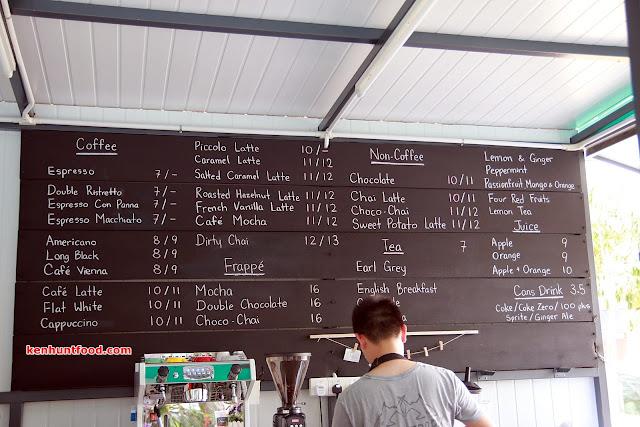 Coffee
Espresso 7/-
Double Ristretto 7/-
Espresso Con Panna 7/-
Espresso Macchiato 7/-
Americano 8/9
Long Black 8/9
Café Vienna 8/9
Café Latte 10/11
Flat White 10/11
Cappuccino 10/11
Piccolo Latte 10/-
Caramel Latte 11/12
Salted Caramel Latte 11/12
Roasted Hazelnut Latte 11/12
French Vanilla Latte 11/12
Café Mocha 11/12
Dirty Chai 12/13
Frappé
Mocha 16
Double Chocolate 16
Choco-Chai 16
Non-Coffee
Chocolate 10/11
Chai Latte 10/11
Choco-Chai 11/12
Sweet Potato Latte 11/12
Tea 7
Earl Grey
English Breakfast
Lemon & Ginger
Peppermint
Passionfruit Mango & Orange
Four Red Fruits
Lemon Tea
Juice
Apple 9
Orange 9
Apple + Orange 10
Cans Drink 3.5
Coke/Coke Zero/100 plus
Sprite/Ginger Ale
kenhuntfood.com